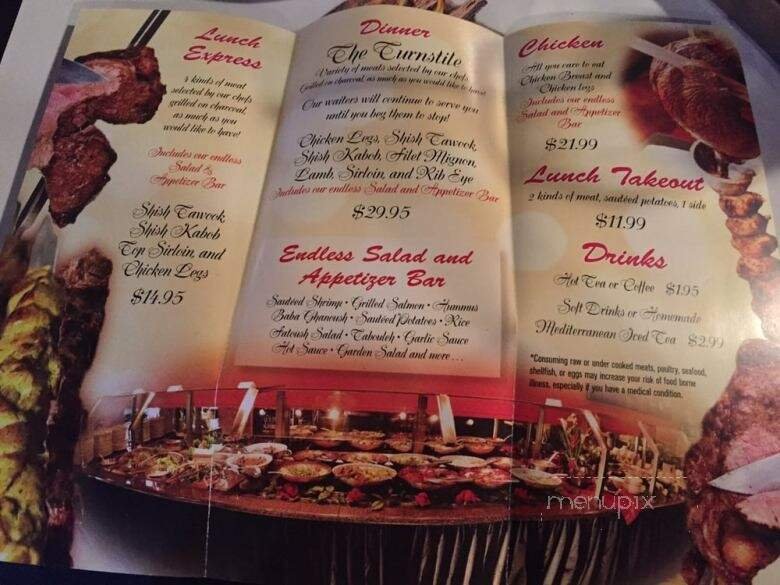 Lunch
Express
4 kinds of meat
selected by our chefs
grilled on charcoal,
as much as you
would like to have!
Includes our endless
Salad &
Appetizer Bar
Shish Tawook,
Shish Kabob
Top Sirloin, and
Chicken Legs
$14.95
Dinner
The Turnstile
Variety of meats selected by our chefs
Grilled on charcoal, as much as you would like to have!
Our waiters will continue to serve you
until you beg them to stop!
Chicken Legs, Shish Tawook,
Shish Kabob, Filet Mignon,
Lamb, Sirloin, and Rib Eye
Includes our endless Salad and Appetizer Bar
$29.95
Endless Salad and
Appetizer Bar
Sautéed Shrimp • Grilled Salmon • Hummus
Baba Ghanoush • Sautéed Potatoes • Rice
Fatoush Salad • Tabouleh • Garlic Sauce
Hot Sauce • Garden Salad and more...
Chicken
All you care to eat
Chicken Breast and
Chicken Legs
Includes our endless
Salad and Appetizer
Bar
$21.99
Lunch Takeout
2 kinds of meat, sautéed potatoes, 1 side
$11.99
Drinks
Hot Tea or Coffee $1.95
Soft Drinks or Homemade
Mediterranean Iced Tea $2.99
*Consuming raw or under cooked meats, poultry, seafood,
shellfish, or eggs may increase your risk of food borne
illness, especially if you have a medical condition.
menupix